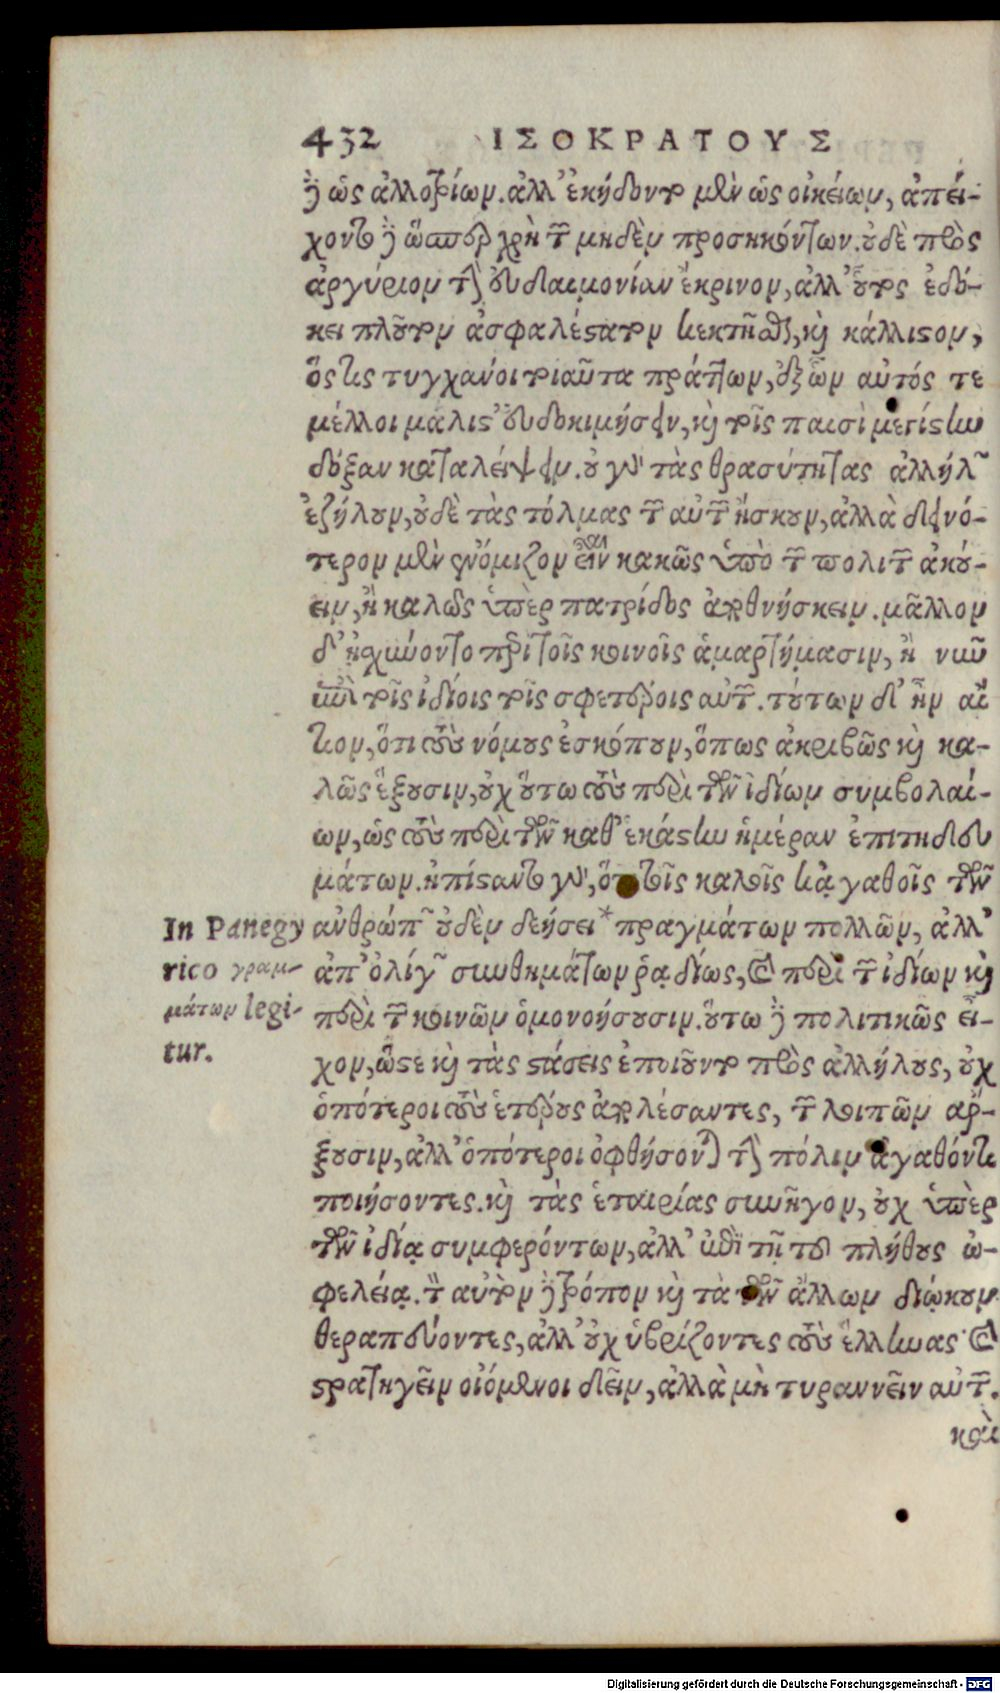 432 ΙΣΟΚΡΑΤΟΥΣ
δὲ ὡς ἀλλοτρίων. ἀλλ' ἐκήδοντο μὲν ὡς οἰκείων, ἀπεί-
χοντο δὲ ὥσπερ χρὴ τῶν μηδὲν προσηκόντων. οὐδὲ πρὸς
ἀργύριον τὴν εὐδαιμονίαν ἔκρινον, ἀλλ' οὗτος ἐδό-
κει πλοῦτον ἀσφαλέστατον κεκτῆσθαι, καὶ κάλλιστον,
ὅς τις τυγχάνοι τοιαῦτα πράττων, ἐξ ὧν αὐτός τε
μέλλοι μάλιστ' εὐδοκιμήσειν, καὶ τοῖς παισὶ μεγίστην
δόξαν καταλείψειν. οὐ γὰρ τὰς θρασύτητας ἀλλήλων
ἐζήλουν, οὐδὲ τὰς τόλμας τὰς αὐτῶν ἤσκουν, ἀλλὰ δεινό-
τερον μὲν ἐνόμιζον εἶναι κακῶς ὑπὸ τῶν πολιτῶν ἀκού-
ειν, ἢ καλῶς ὑπὲρ πατρίδος ἀποθνήσκειν. μᾶλλον
δ' ᾐσχύνοντο ἐπὶ τοῖς κοινοῖς ἁμαρτήμασιν, ἢ νῦν
ἐπὶ τοῖς ἰδίοις τοῖς σφετέροις αὐτῶν. τούτων δ' ἦν αἴ
τιον, ὅτι τοὺς νόμους ἐσκόπουν, ὅπως ἀκριβῶς καὶ κα-
λῶς ἕξουσιν, οὐχ οὕτω τοὺς περὶ τῶν ἰδίων συμβολαί-
ων, ὡς τοὺς περὶ τῶν καθ' ἑκάστην ἡμέραν ἐπιτηδευ
μάτων. ἠπίσταντο γὰρ, ὅτι τοῖς καλοῖς κἀγαθοῖς τῶν
ἀνθρώπων οὐδὲν δεήσει* πραγμάτων πολλῶν, ἀλλ'
ἀπ' ὀλίγων συνθημάτων ῥᾳδίως, καὶ περὶ τῶν ἰδίων καὶ
περὶ τῶν κοινῶν ὁμονοήσουσιν. οὕτω δὲ πολιτικῶς εἶ-
χον, ὥστε καὶ τὰς στάσεις ἐποιοῦντο πρὸς ἀλλήλους, οὐχ
ὁπότεροι τοὺς ἑτέρους ἀπολέσαντες, τῶν λοιπῶν ἄρ-
ξουσιν, ἀλλ' ὁπότεροι ὀφθήσονται τὴν πόλιν ἀγαθόν τι
ποιήσοντες. καὶ τὰς ἑταιρίας συνῆγον, οὐχ ὑπὲρ
τῶν ἰδίᾳ συμφερόντων, ἀλλ' ἐπὶ τῇ τοῦ πλήθους ὠ-
φελείᾳ. τὸν αὐτὸν δὲ τρόπον καὶ τὰ τῶν ἄλλων διῴκουν
θεραπεύοντες, ἀλλ' οὐχ ὑβρίζοντες τοὺς ἕλληνας· καὶ
στρατηγεῖν οἰόμενοι δεῖν, ἀλλὰ μὴ τυραννεῖν αὐτῶν.
καὶ
In Panegy
rico γραμ-
μάτων legi-
tur.
Digitalisierung gefördert durch die Deutsche Forschungsgemeinschaft - DFG